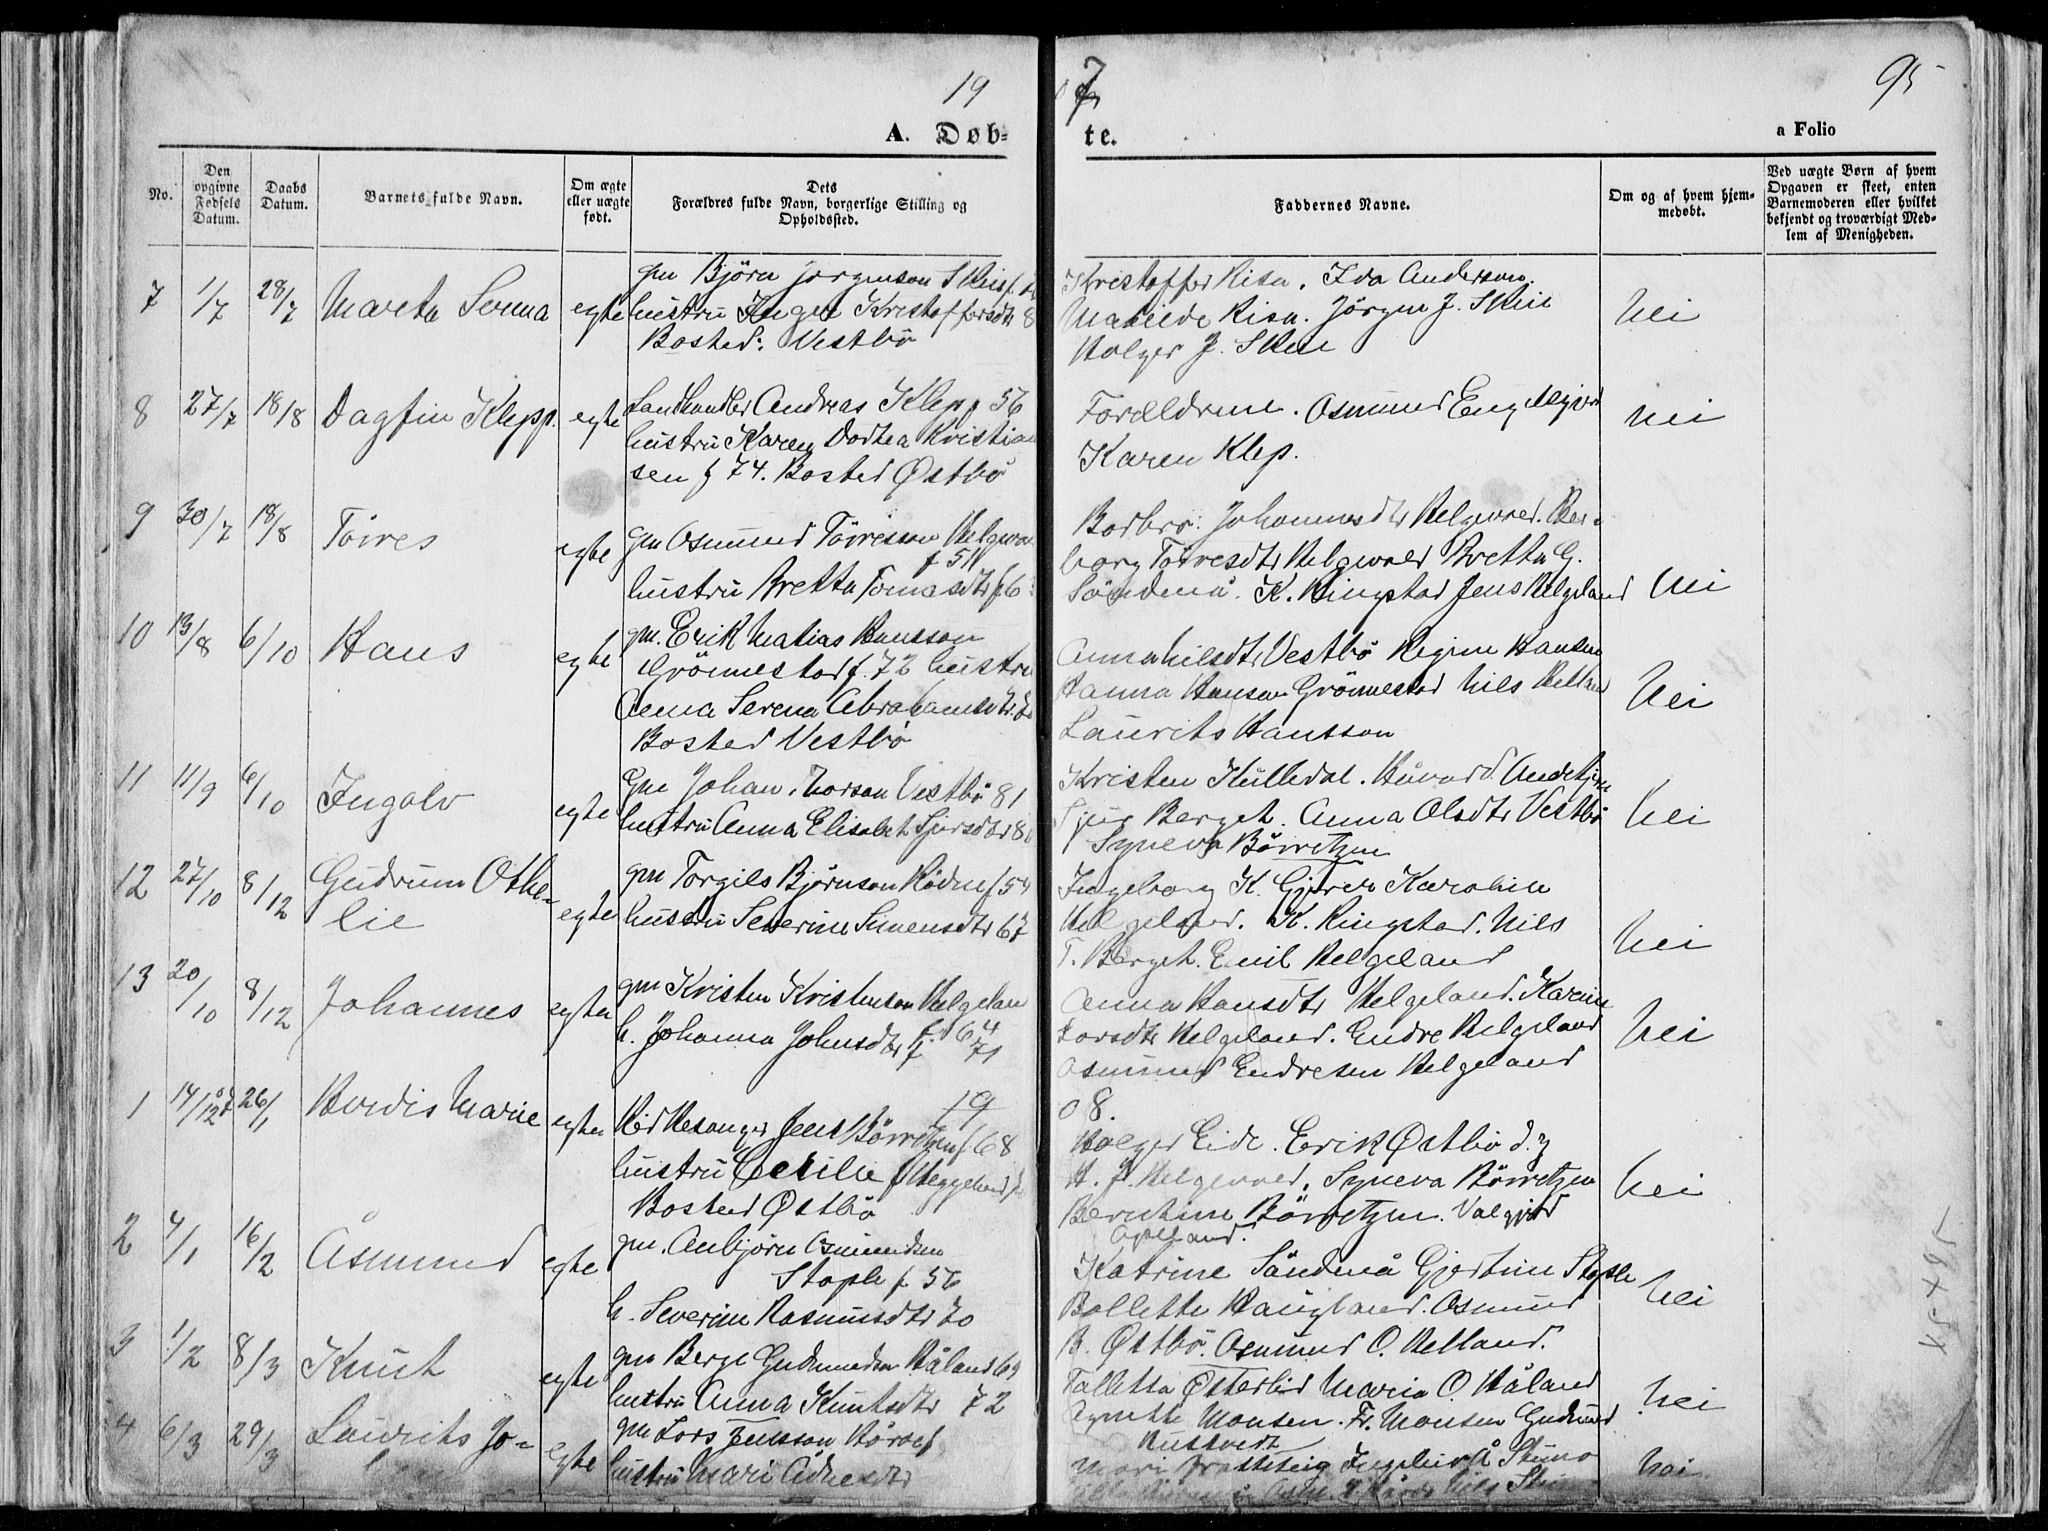 19
07
95
A. Døb-
te.
a Folio
No.
Den opgivne Fødsels Datum.
Daabs Datum.
Barnets fulde Navn.
Om ægte eller uægte født.
Dets
Forældres fulde Navn, borgerlige Stilling og
Opholdssted.
Faddernes Navne.
Om og af hvem hjem-
medøbt.
Ved uægte Børn af hvem
Opgaven er skeet, enten
Barnemoderen eller hvilket
bekjendt og troværdigt Med-
lem af Menigheden.
7 1/7 28/7 Marta Serina egte gm Björn Jörgenson Skeie f.
hustru Inger Kristoffersdtr 8
Bosted: Vestbö
Kristoffer Risa. Ida Anderson.
Matilde Risa. Jörgen J. Skeie
Holger J. Skeie
nei
8 27/7 18/8 Dagfin Klepp. egte Landhandler Andreas Klepp 56
hustru Karen Dortea Kristian
sen f 74. Bosted Østbö
Forældrene. Osmund
Karen Klep.
nei
9 30/7 18/8 Törres egte gm Osmund Törresson Helgevold
f 51
hustru Bretta Tomasdtr f 6
Borbro. Johannesdtr Helgevold. Ber-
borg Törresdtr Helgevold Bretta G.
Söndenå. K. Ringstad Jens Helgeland
nei
10 13/8 6/10 Hans egte gm. Erik Matias Hansson
Grönnestad f. 72 hustru
Anna Serena Abrahamsdtr. 70
Bosted Vestbö
Anna Nilsdtr Vestbö Regine Hansen
Hanna Hansen Grönnestad Nils Helland
Laurits Hansson
nei
11 11/9 6/10 Ingolv egte Gm Johan. Larson Vestbö 81
hustru Anna Elisabet Sjursdtr 8
Kristen Hulledal. Håvard.
Sjur Berget. Anna Olsdtr Vestbö
Syneva Börretzen
nei
12 27/10 8/12 Gudrun Othe-
lie egte gm Torgils Björnson Rödne f 54
hustru Severine Simensdtr 67
Ingeborg K. Gjerer Karoline
Helgeland. K. Ringstad. Nils
T. Berget. Emil Helgeland
nei
13 20/10 8/12 Johannes egte gm Kristen Kristenson Helgeland
f. 64
h. Johanna Johnsdtr f 71
Anna Hansdtr Helgeland. Karine
Larsdtr Helgeland. Endre Helgeland
Osmund Endresen Helgeland
nei
19
08.
1 14/12 07 26/1 Hordis Marie egte Kirkesanger Jens Börretzen f 68
hustru Cecilie f Heggeland
Bosted Østbö
Holger Eide. Erik Østbö d.y
H. J. Helgevold. Syneva Börretzen
Berntine Börretzen. Valgjerd
Opland.
nei
2 4/1 16/2 Åsmund egte gm. Anbjörn Osmundsen
Stople f 56
h. Severine Rasmusdtr 70
Katrine Söndenå Gjertine Stople
Bollette Haugland. Osmund
B. Østbö. Osmund O. Helland.
nei
3 1/2 8/3 Knut egte gm Berge Gudmundsen Håland 69
hustru Anna Knutsdtr 72
Tolletta Østerlid Maria O. Håland
Agnette Monsen. Fr. Monsen Gudmund
nei
4 6/3 29/3 Laurits Jo- egte gm Lars Jensson
hustru Mari Ådnesdtr
Mari
nei